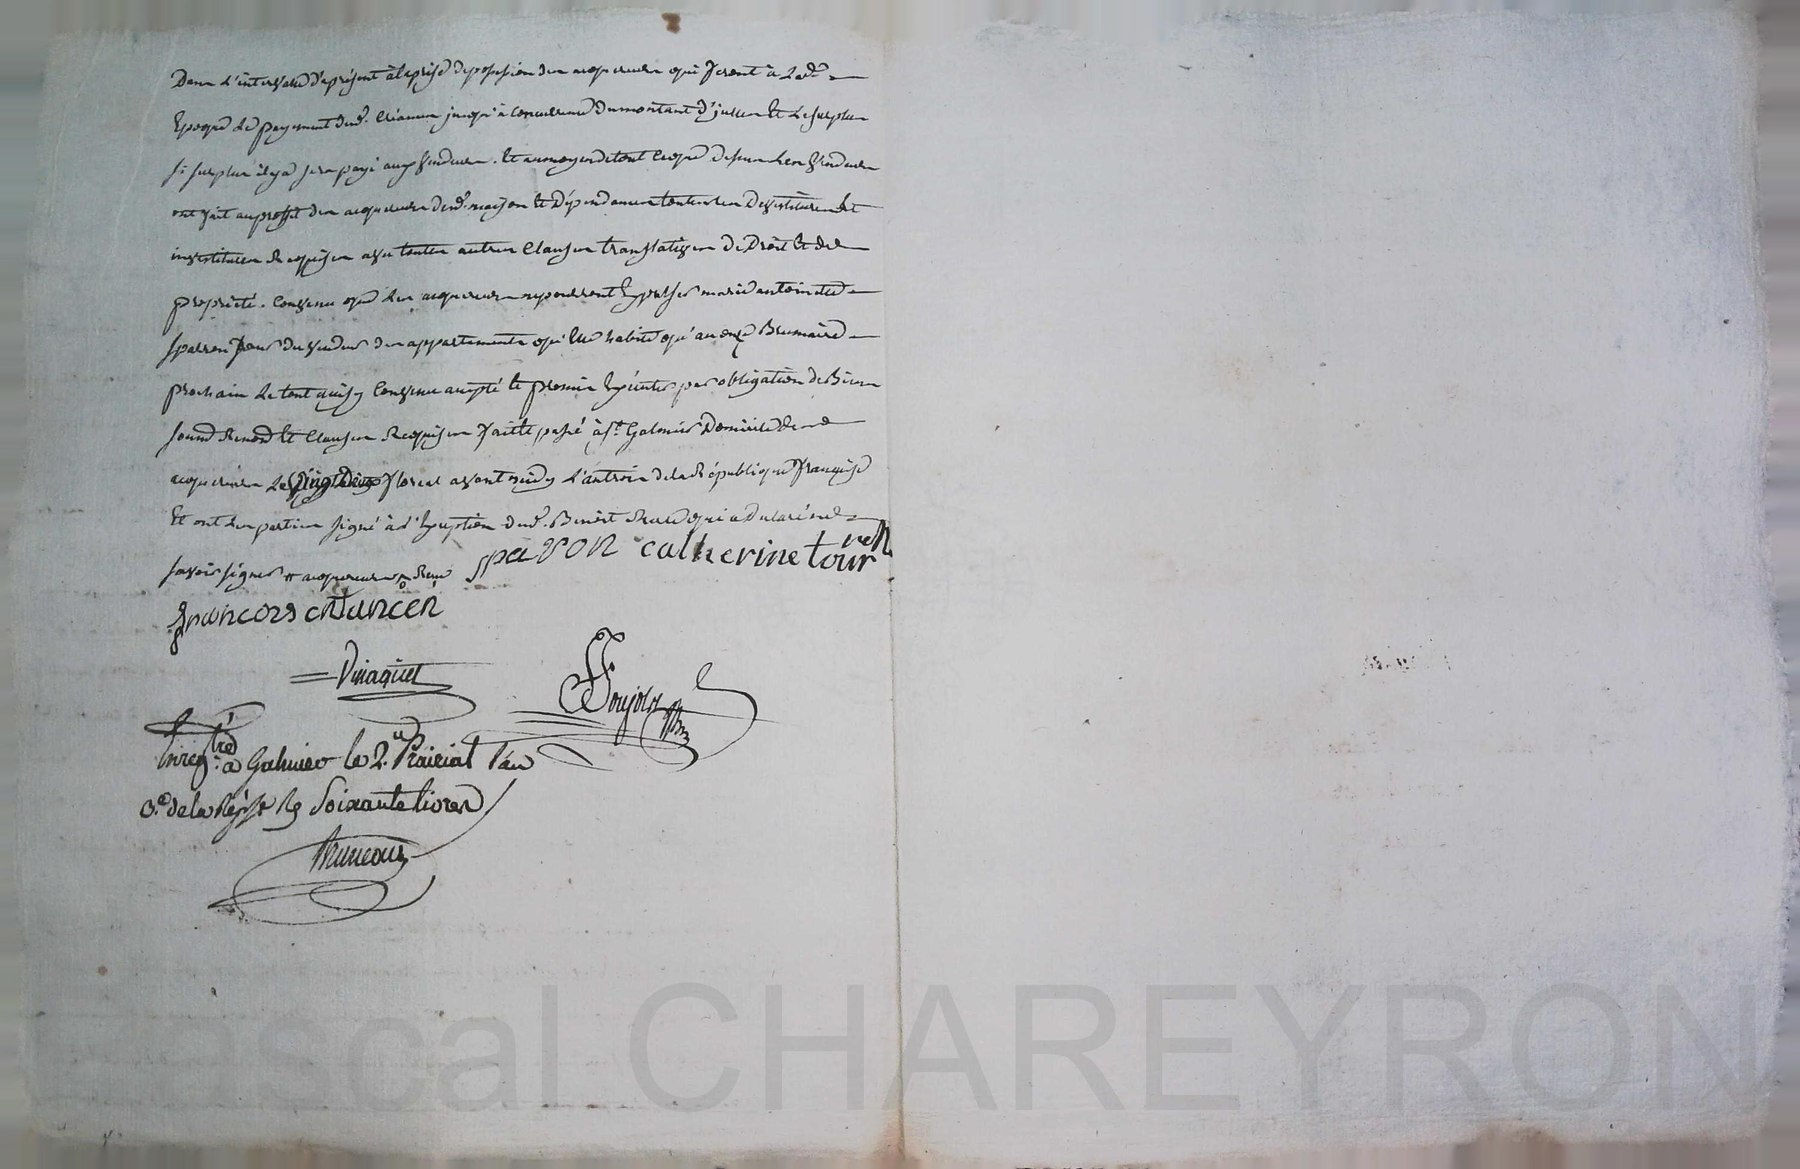 Dans l'intervalle d'apresent à la prise de possession des acquereurs qui feront à lad.e
Epoque le payement desd. Creances jusqu'à concurrence du montant d'jcelles Et le surplus
si surplus il y a sera payé auxd vendeurs. Et au moyen de tout ce que dessus les vendeurs
ont fait au profit des acquereurs desd. maison Et Dépendances toutes les Devestitures Et
investitures Requises avec toutes autres Clauses translatives de Droit Et de
propriété. Convenu que les acquereurs ne pourront Expulser marie antoinette
sparron des appartements qu'Elle habite qu'au onze Brumaire
prochain Le tout ainsi Convenu accepté Et promis Exécuter par obligation de Biens
soumd Renond Et Clauses Requises fait Et passé à St. Galmier Domicile des
acquereurs Le vingt deux floreal avant midy L'an trois de la République française
Et ont les parties signé à l'Exception dud. Benoit qui a declaré ne
savoir signer acquereurs
sparon catherine tour
rell
francois chancen
Vinaquet
Poujol
Enreg.tré à Galmier le 2. Prairial l'an
3.e de la Rep. R soixante livres
Bruneau
Pascal CHAREYRON